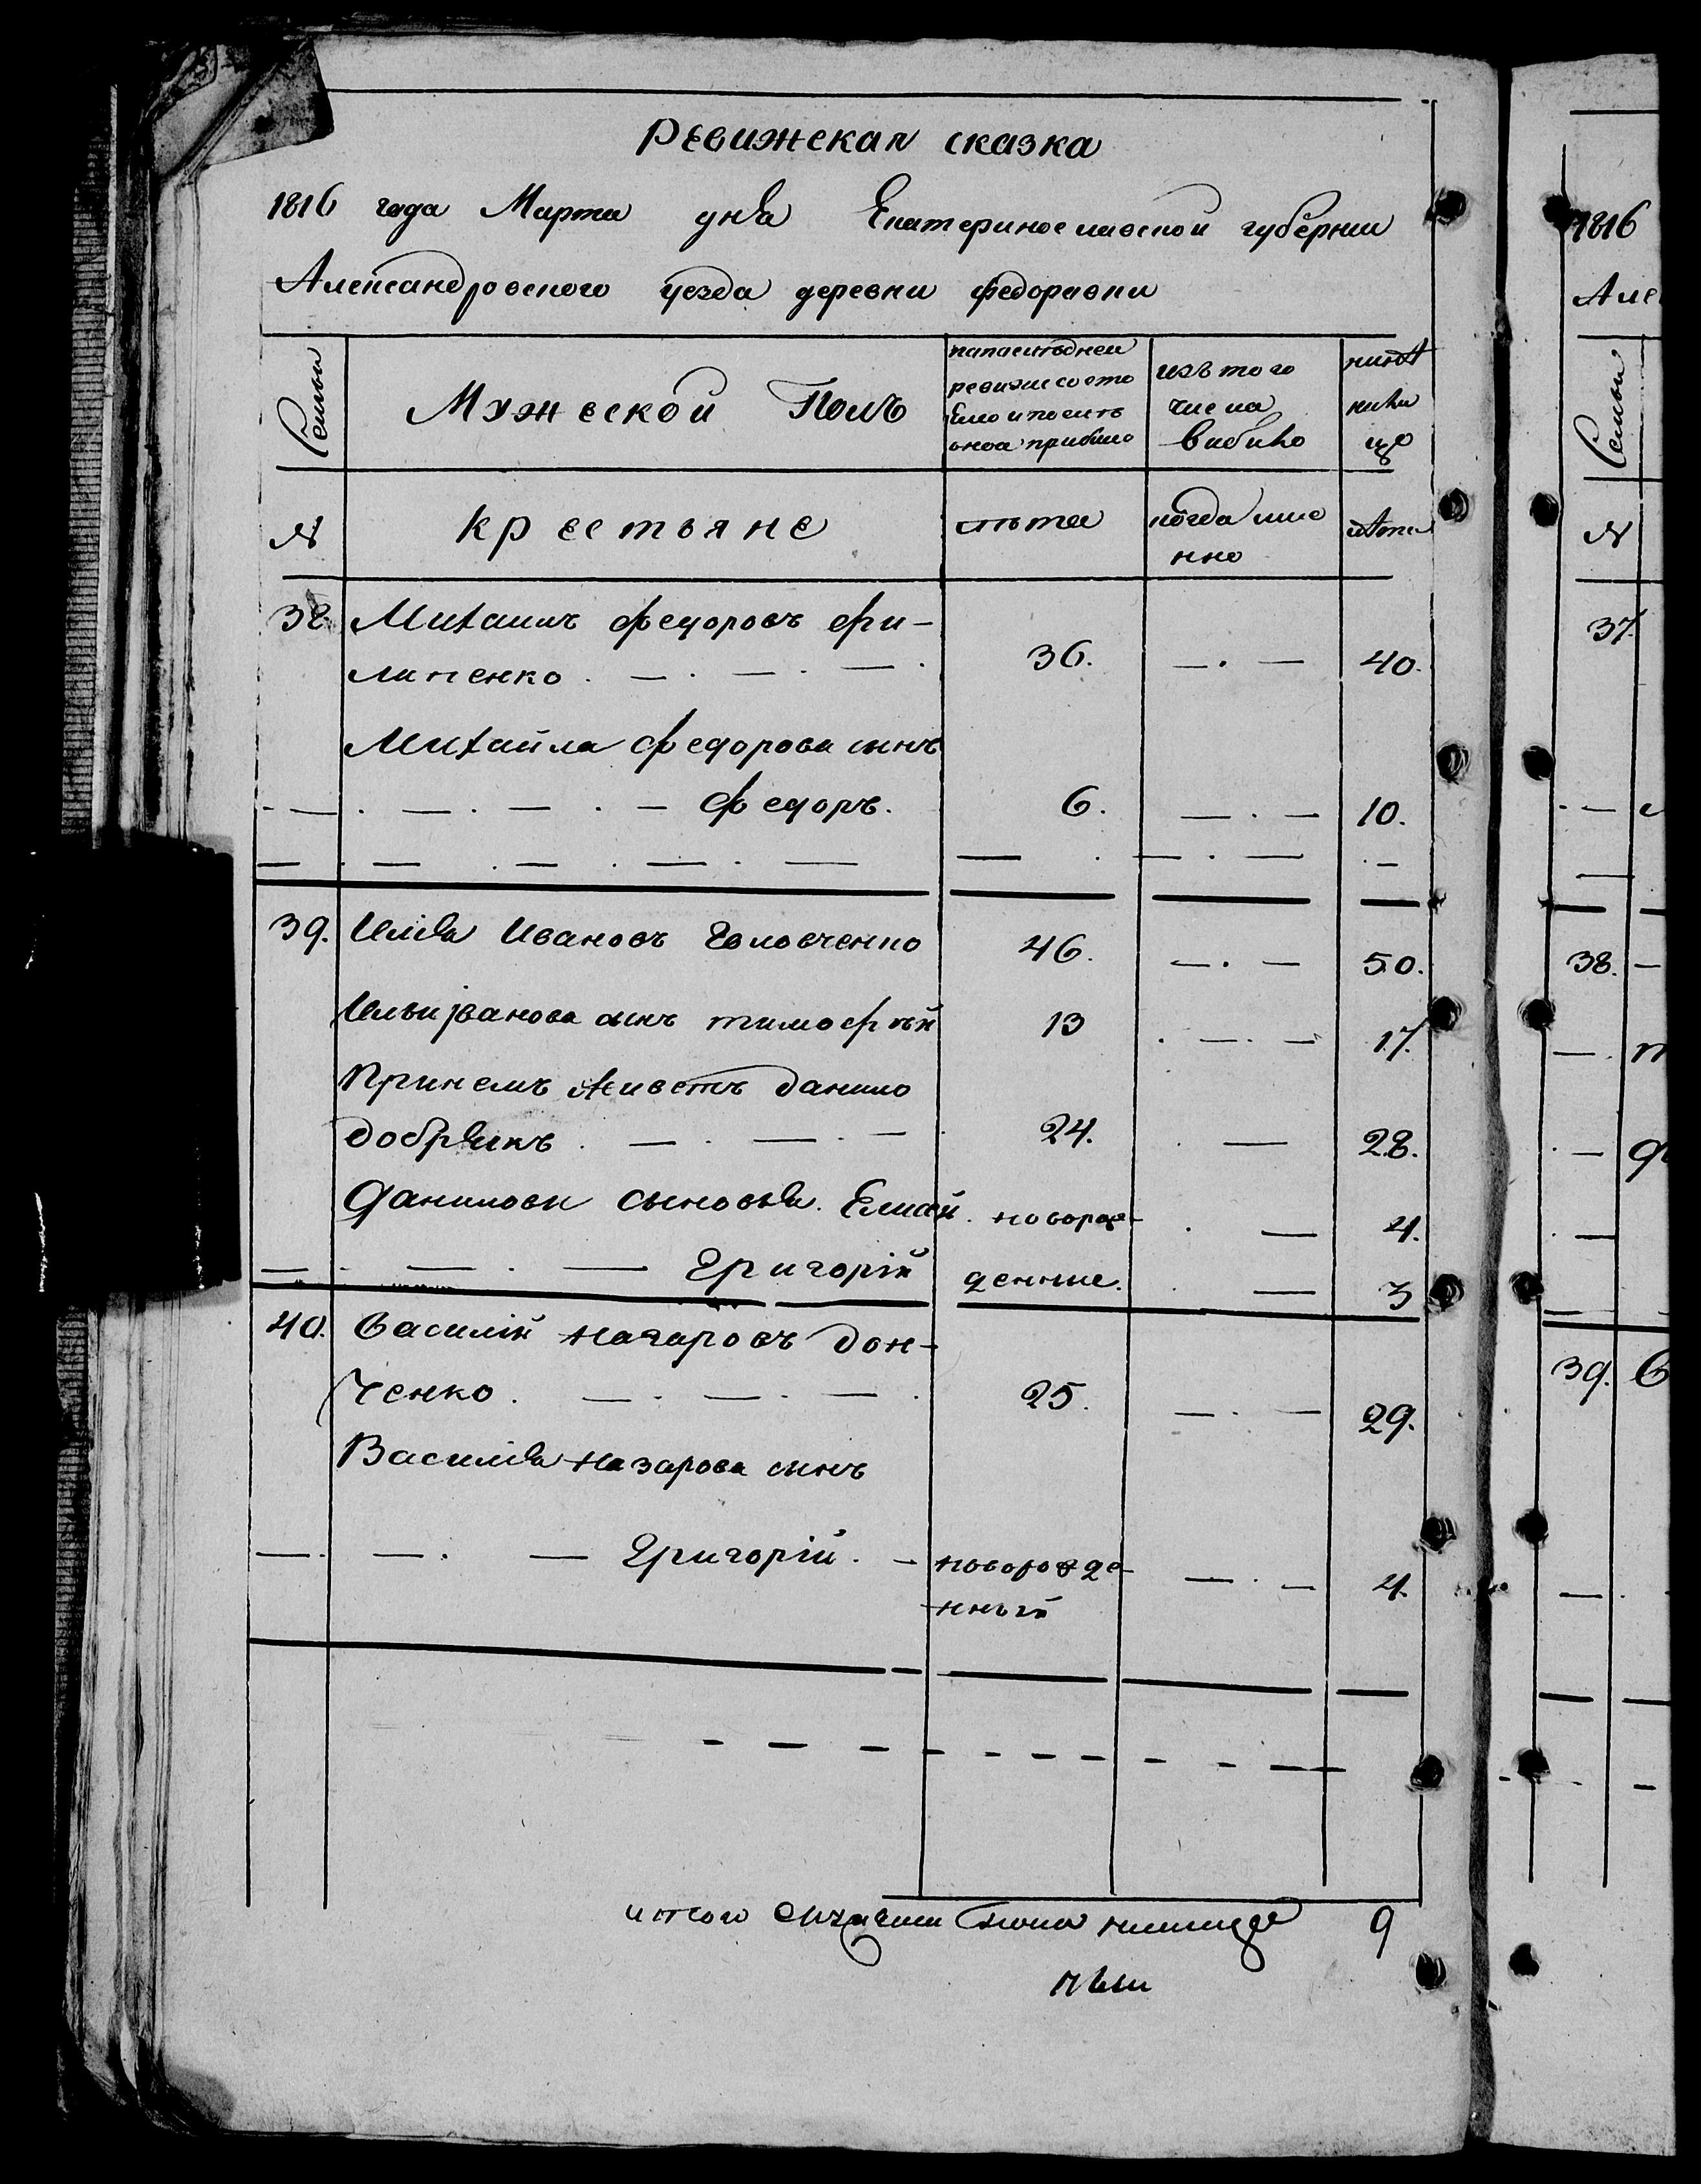 Ревижская сказка
1816 года Марта дня Екатеринославской губернии
Александровского уезда деревни федоравки
Семьи
Мужескои Полъ
ревизии состо
яло и после
оноа прибыло
изъ того
числа
выбыло
ныне
на ли
цо
№
крестьяне
лета
когда име
нно
лета
38. Михаилъ федоровъ фи-
липенко 36. 40.
Михайла федорова сынъ
федоръ. 6. 10.
39. Илья Ивановъ Головченко 46. 50.
Ильи Iванова сынъ тимофѣй 13 17.
При немъ живетъ данило
добрякъ 24. 28.
Даниловы сыновья. Елисѣй. новорож- 4.
Григорій денные. 3
40. Василій Назаровъ дон-
ченко. 25. 29.
Василія Назарова сынъ
Григорій. новорожде-
нный 4.
итого мужеска пола налицо 9
1816
Але
Семьи
№
37.
38.
39.